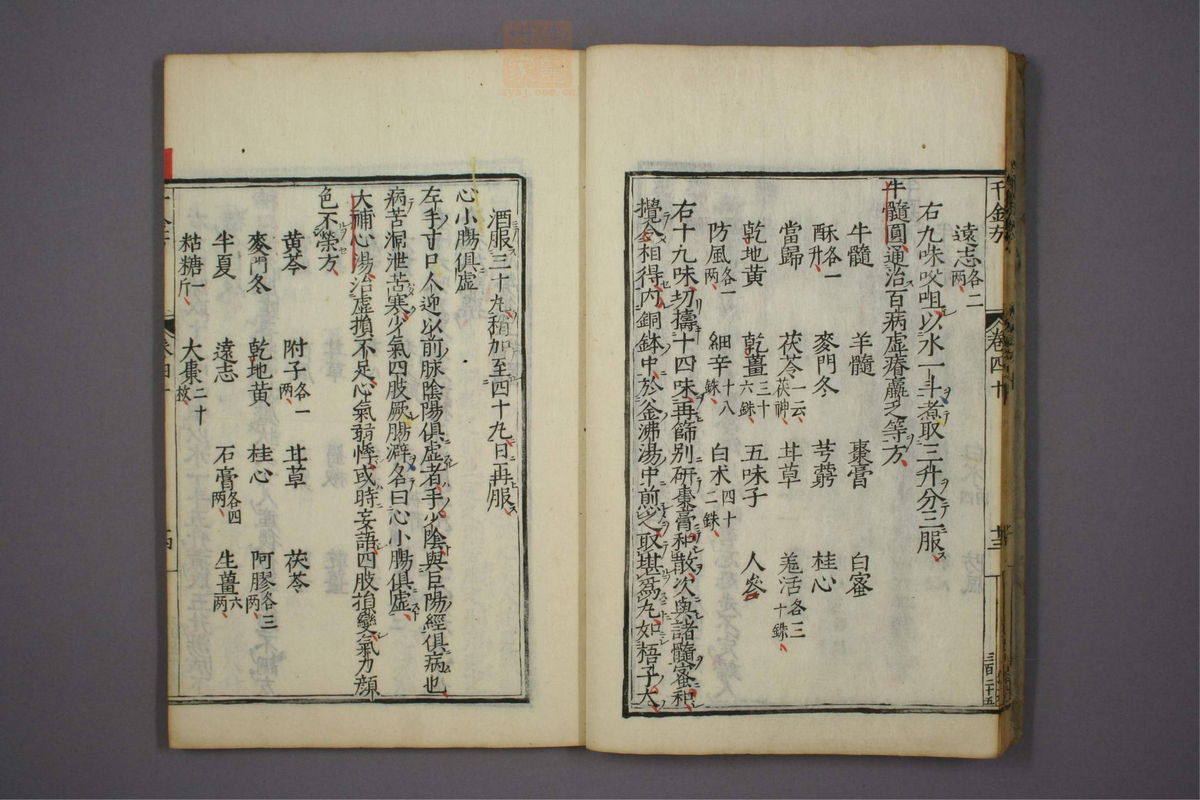 千金方
卷四十
遠志各二兩
右九味㕮咀以水一斗煮取三升分三服
牛髓圓通治百病虛瘠羸乏等方
牛髓 羊髓 棗膏 白蜜
酥各一升 麥門冬 芎藭 桂心
當歸 茯苓一云茯神 甘草 羌活各三十銖
乾地黃 乾薑三十六銖 五味子 人參
防風各一兩 細辛十八銖 白朮四十二銖
右十九味切擣十四味再篩別研棗膏和散次與諸髓蜜和
攪令相得內銅鉢中於釜沸湯中煎之取堪爲丸如梧子大
酒服三十丸稍加至四十丸日再服
心小腸俱虛
左手寸口人迎以前脉陰陽俱虛者手少陰與巨陽經俱病也
病苦洞泄苦寒少氣四肢厥腸澼名曰心小腸俱虛
大補心湯治虛損不足心氣弱悸或時妄語四肢損變氣力顏
色不榮方
黃芩 附子各一兩 甘草 茯苓
麥門冬 乾地黃 桂心 阿膠各三兩
半夏 遠志 石膏各四兩 生薑六兩
粘糖一斤 大棗二十枚